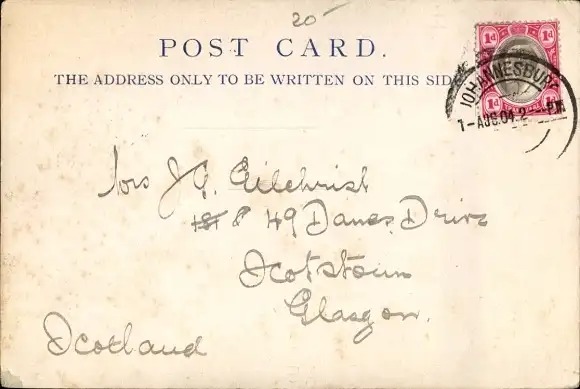 20-
POST CARD.
THE ADDRESS ONLY TO BE WRITTEN ON THIS SIDE
1d 1d
JOHANNESBURG
1-AUG.04.2 PM
½d ½d
J G. Gilchrist
49 Danes Drive
Scotstoun
Glasgow.
Scotland